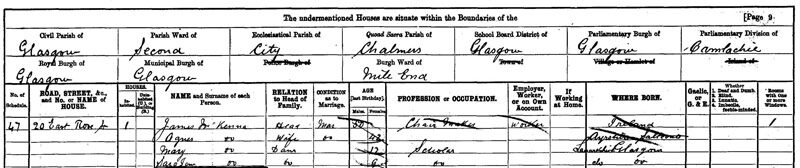 The undermentioned Houses are situate within the Boundaries of the [Page 9
Civil Parish of Parish Ward of Ecclesiastical Parish of Quoad Sacra Parish of School Board District of Parliamentary Burgh of Parliamentary Division of
Glasgow Second City Chalmers Glasgow Glasgow Camlachie
Royal Burgh of Municipal Burgh of Police Burgh of Burgh Ward of Town of Village or Hamlet of Island of
Glasgow Glasgow Mile End
No. of Schedule. ROAD, STREET, &c., and No. or NAME of HOUSE. HOUSES. NAME and Surname of each Person. RELATION to Head of Family. CONDITION as to Marriage. AGE (last Birthday). Males. Females. PROFESSION or OCCUPATION. Employer, Worker, or on Own Account. If Working at Home. WHERE BORN. Gaelic, or G. & E. Whether 1. Deaf and Dumb. 2. Blind. 3. Lunatic. 4. Imbecile, feeble-minded. Rooms with One or more Windows.
47 20 East Rose St 1 James McKenna Head Mar 50 Chair Maker Worker Ireland 1
Agnes do Wife do 43 Ayrshire
Mary do Daur 12 Scholar Lanarkshire Glasgow
do do do